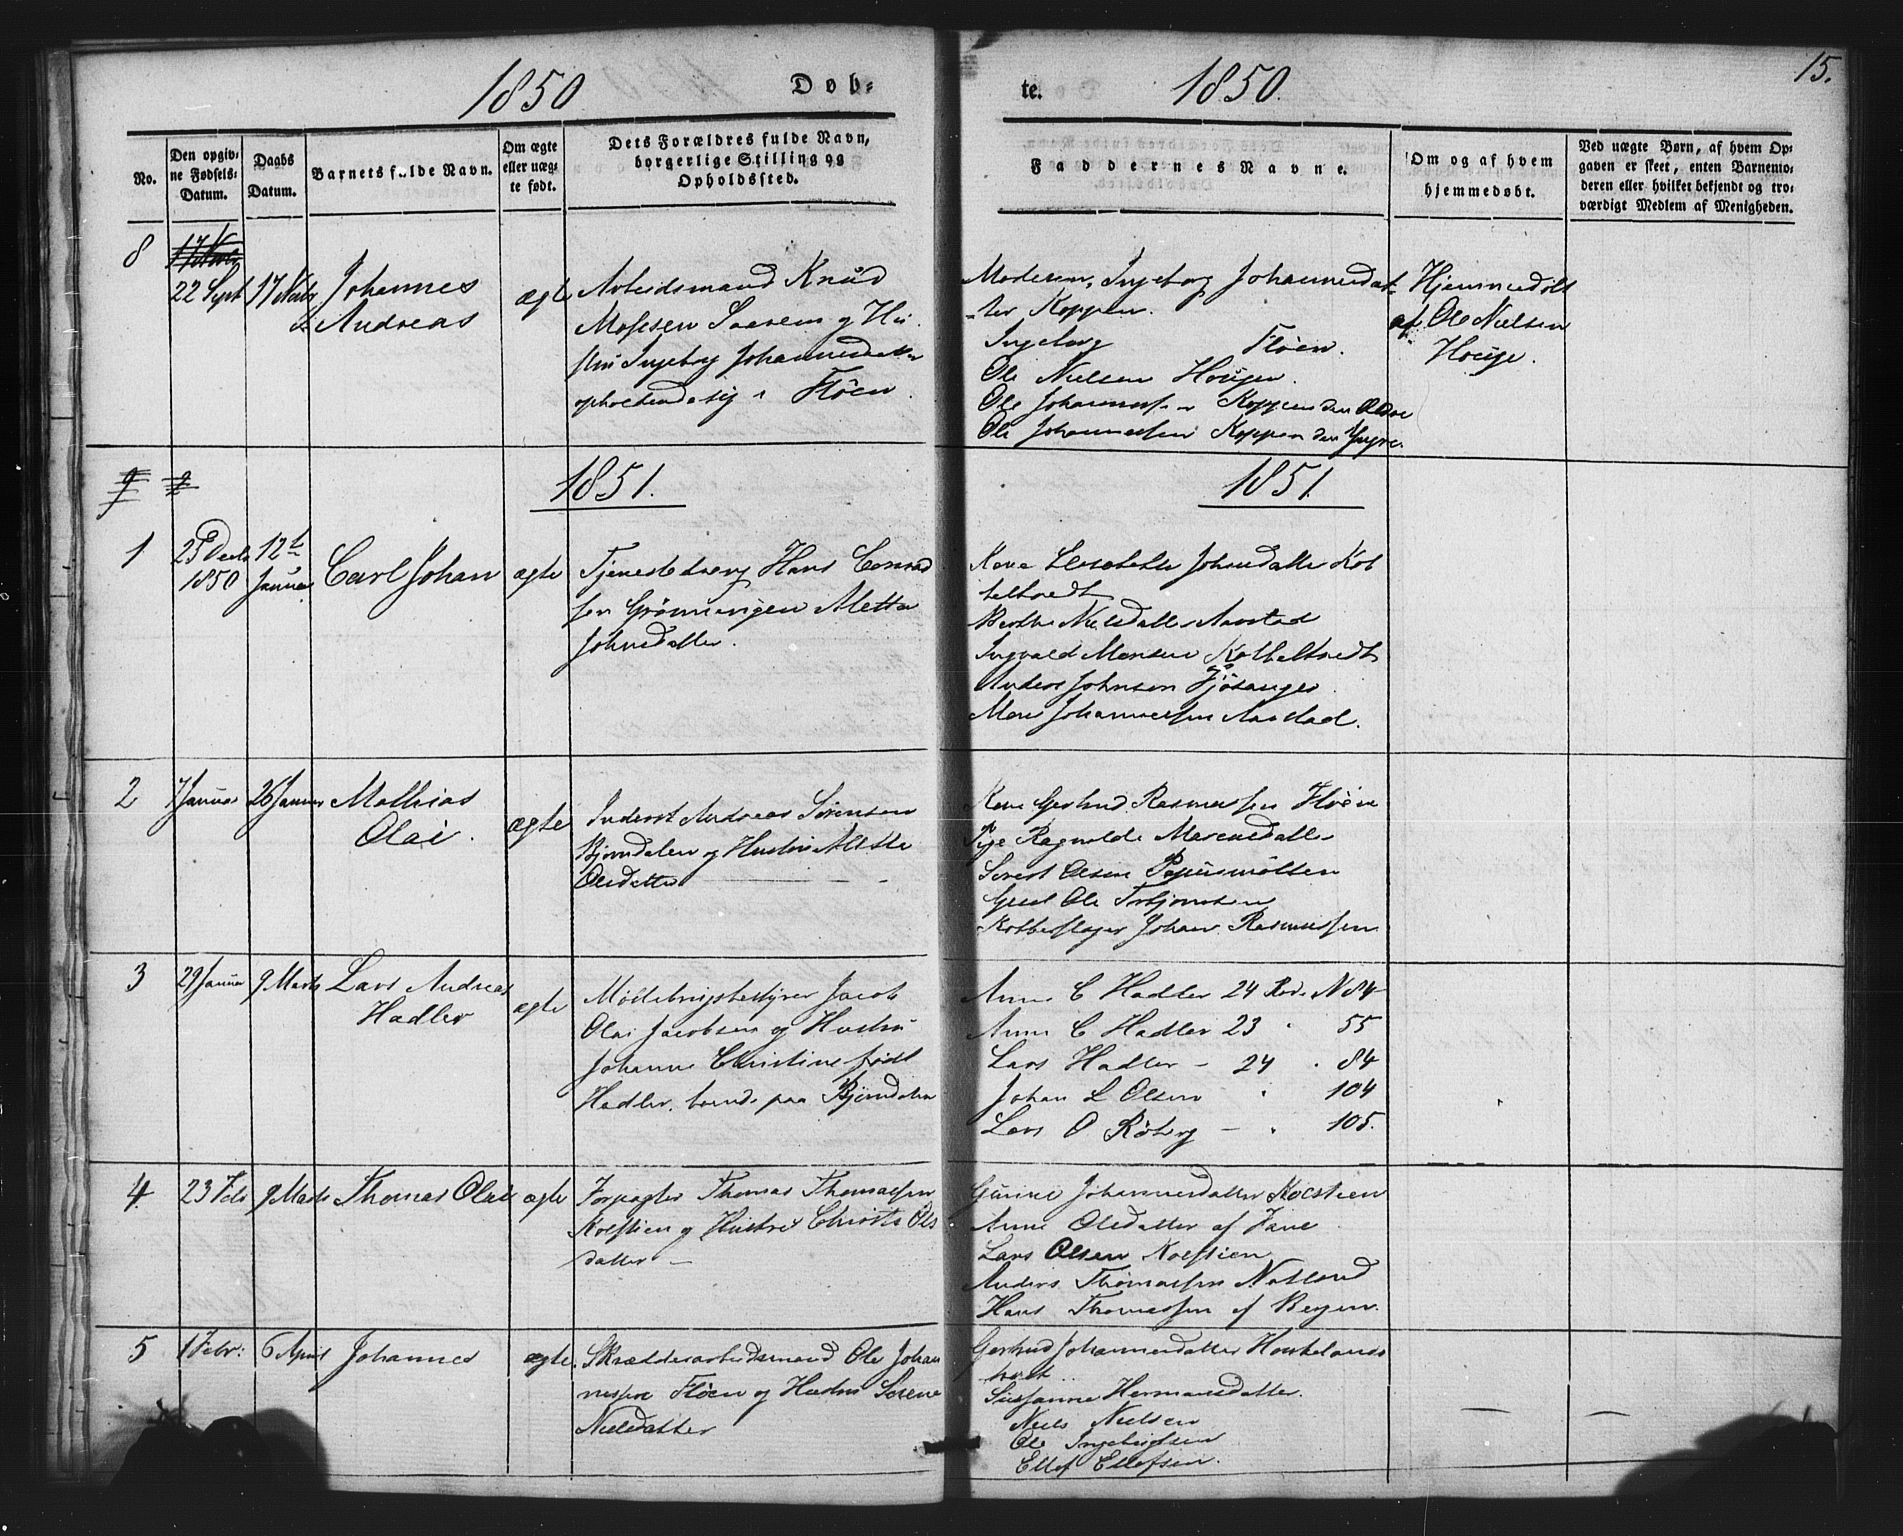 1850
Dob-
te.
1850.
15.
No.
Den opgiv-
ne Fødsels-
Datum.
Daabs
Datum.
Barnets fulde Navn.
Om ægte
eller uæg-
te født.
Dets Forældres fulde Navn,
borgerlige Stilling og
Opholdssted.
Faddernes Navne.
Om og af hvem
hjemmedøbt.
Ved uægte Børn, af hvem Op-
gaven er skeet, enten Barnemo-
deren eller hvilket bekjendt og tro-
værdigt Medlem af Menigheden.
8
22 Sept
17 Novbr
Johannes
Andreas
ægte
Arbeidsmand Knud
Mossesen og Hu-
stru Ingeborg Johannesdatter
opholdende sig i Fløen.
Moderen, Ingeborg Johannesdat-
ter Koppen.
Ingeborg Fløen.
Ole Nielsen Hougen.
Ole Johannessen Koppen den Ældre
Ole Johannessen Koppen den Yngre.
Hjemmedøbt
af Ole Nielsen
Houge.
1851.
1851.
1
25 Decbr
1850
12te
Januar
Carl Johan
ægte
Tjenestedreng Hans Conrad
Aletta
Johnsdatter.
Kone Johnsdatter Kol
teltvedt
Berthe Nielsdatter Aarstad
Ingvald Monsen Koltveltvedt
Anders Johnsen Fjøsanger
Mons Johannessen Aarstad.
2
7 Januar
26 Januar
Mathias
Olai.
ægte
Inderst Andreas Sørensen
Bjørndalen og Hustru Alette
Olsdatter
Kone Gertrud Rasmussen Fløen
Pige Ragnilde Marcusdatter
Olsen Papirmøllen
Ole Torbjørnsen
Kobberslager Johan Rasmussen
3
29 Januar
9 Marts
Lars Andreas
Hadler
ægte
Møllebrugsbestyrer Jacob
Olai Jacobsen og Hustru
Johanne Christine født
Hadler, boende paa Bjørndalen
Anne C Hadler 24 Rode N 84
Anne C Hadler 23 " 55
Lars Hadler - 24 " 84
Johan L Olsen " 104
Lars O Røberg - " 105.
4.
23 Feb
9 Marts
Thomas Olai
ægte
Forpagter Thomas Thomassen
Kolstien og Hustru Christi Ols
datter -
Johannesdatter Kolstien
Anne Olsdatter af Fane
Lars Olsen Kolstien
Anders Thomassen Natland
Hans Thomassen af Bergen.
5
1 Febr:
6 April
Johannes
ægte.
Skrædderarbeidsmand Ole Johan
nessen Fløen og Hustru Sørene
Nielsdatter
Gertrud Johannesdatter Haukelands
Susanne Hermansdatter.
Niels Nielsen
Ole Ingebrigtsen
Ellef Ellefsen.